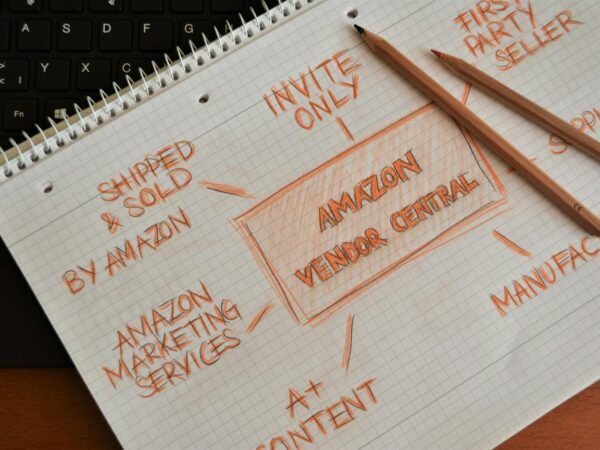 INVITE
ONLY
FIRST
PARTY
SELLER
SHIPPED
& SOLD
BY AMAZON
AMAZON
VENDOR CENTRAL
AMAZON
MARKETING
SERVICES
A+
CONTENT
A S D F G
Y X C V B
Fn